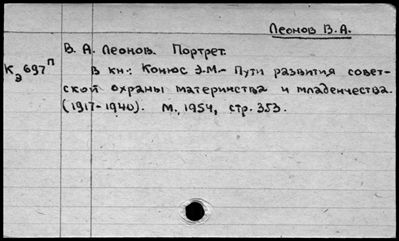 Леонов В.А.
В. А. Леонов. Портрет.
К э 697 п
В кн.: Конюс Э.М.- Пути развития совет-
ской охраны материнства и младенчества.
(1917-1940). М., 1954, стр. 353.